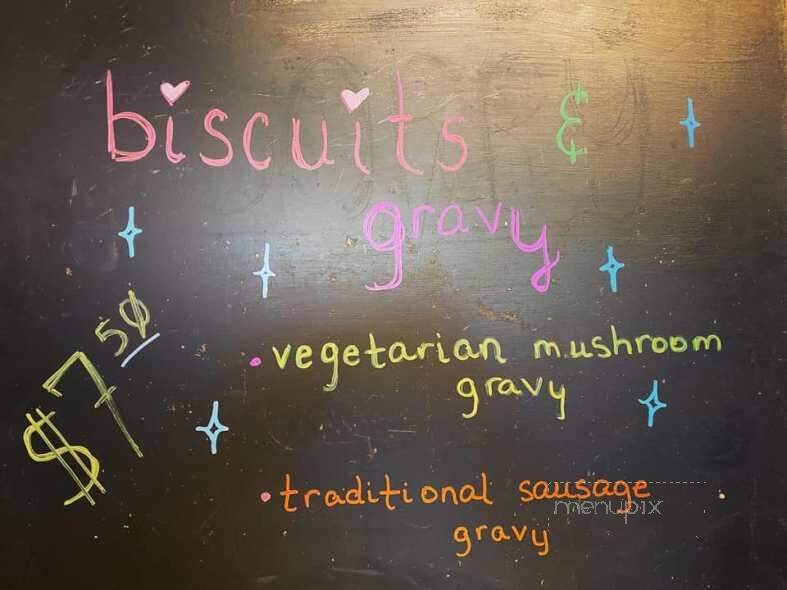 biscuits &
gravy
$7 50
• vegetarian mushroom
gravy
• traditional sausage
gravy
menupix